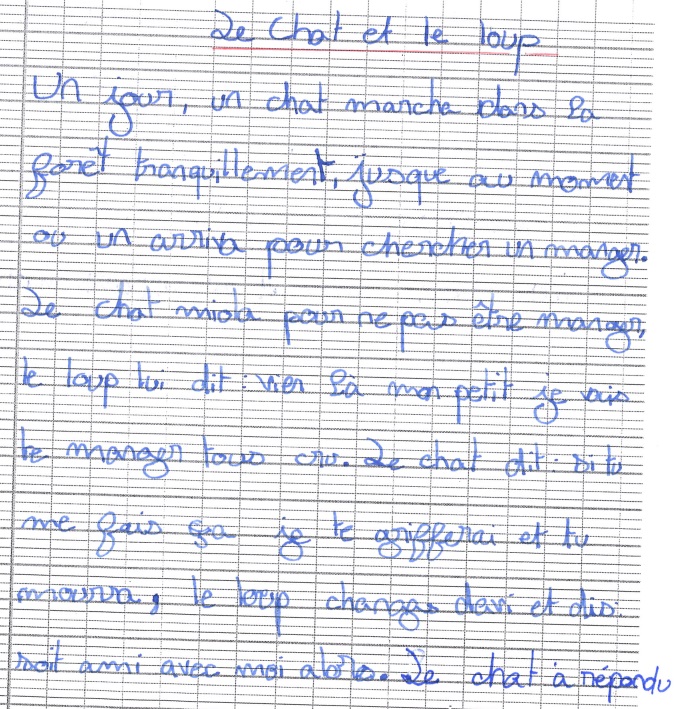 Le Chat et le loup
Un jour, un chat marcha dans la
forêt tranquillement, jusque au moment
ou un arriva pour chercher un manger.
Le chat miola pour ne pas être manger,
le loup lui dit : vien là mon petit je vais
te manger tous cru. Le chat dit : si tu
me fais ça je te grifferai et tu
mourra, le loup changas davi et dis :
soit ami avec moi alors. Le chat à répondu